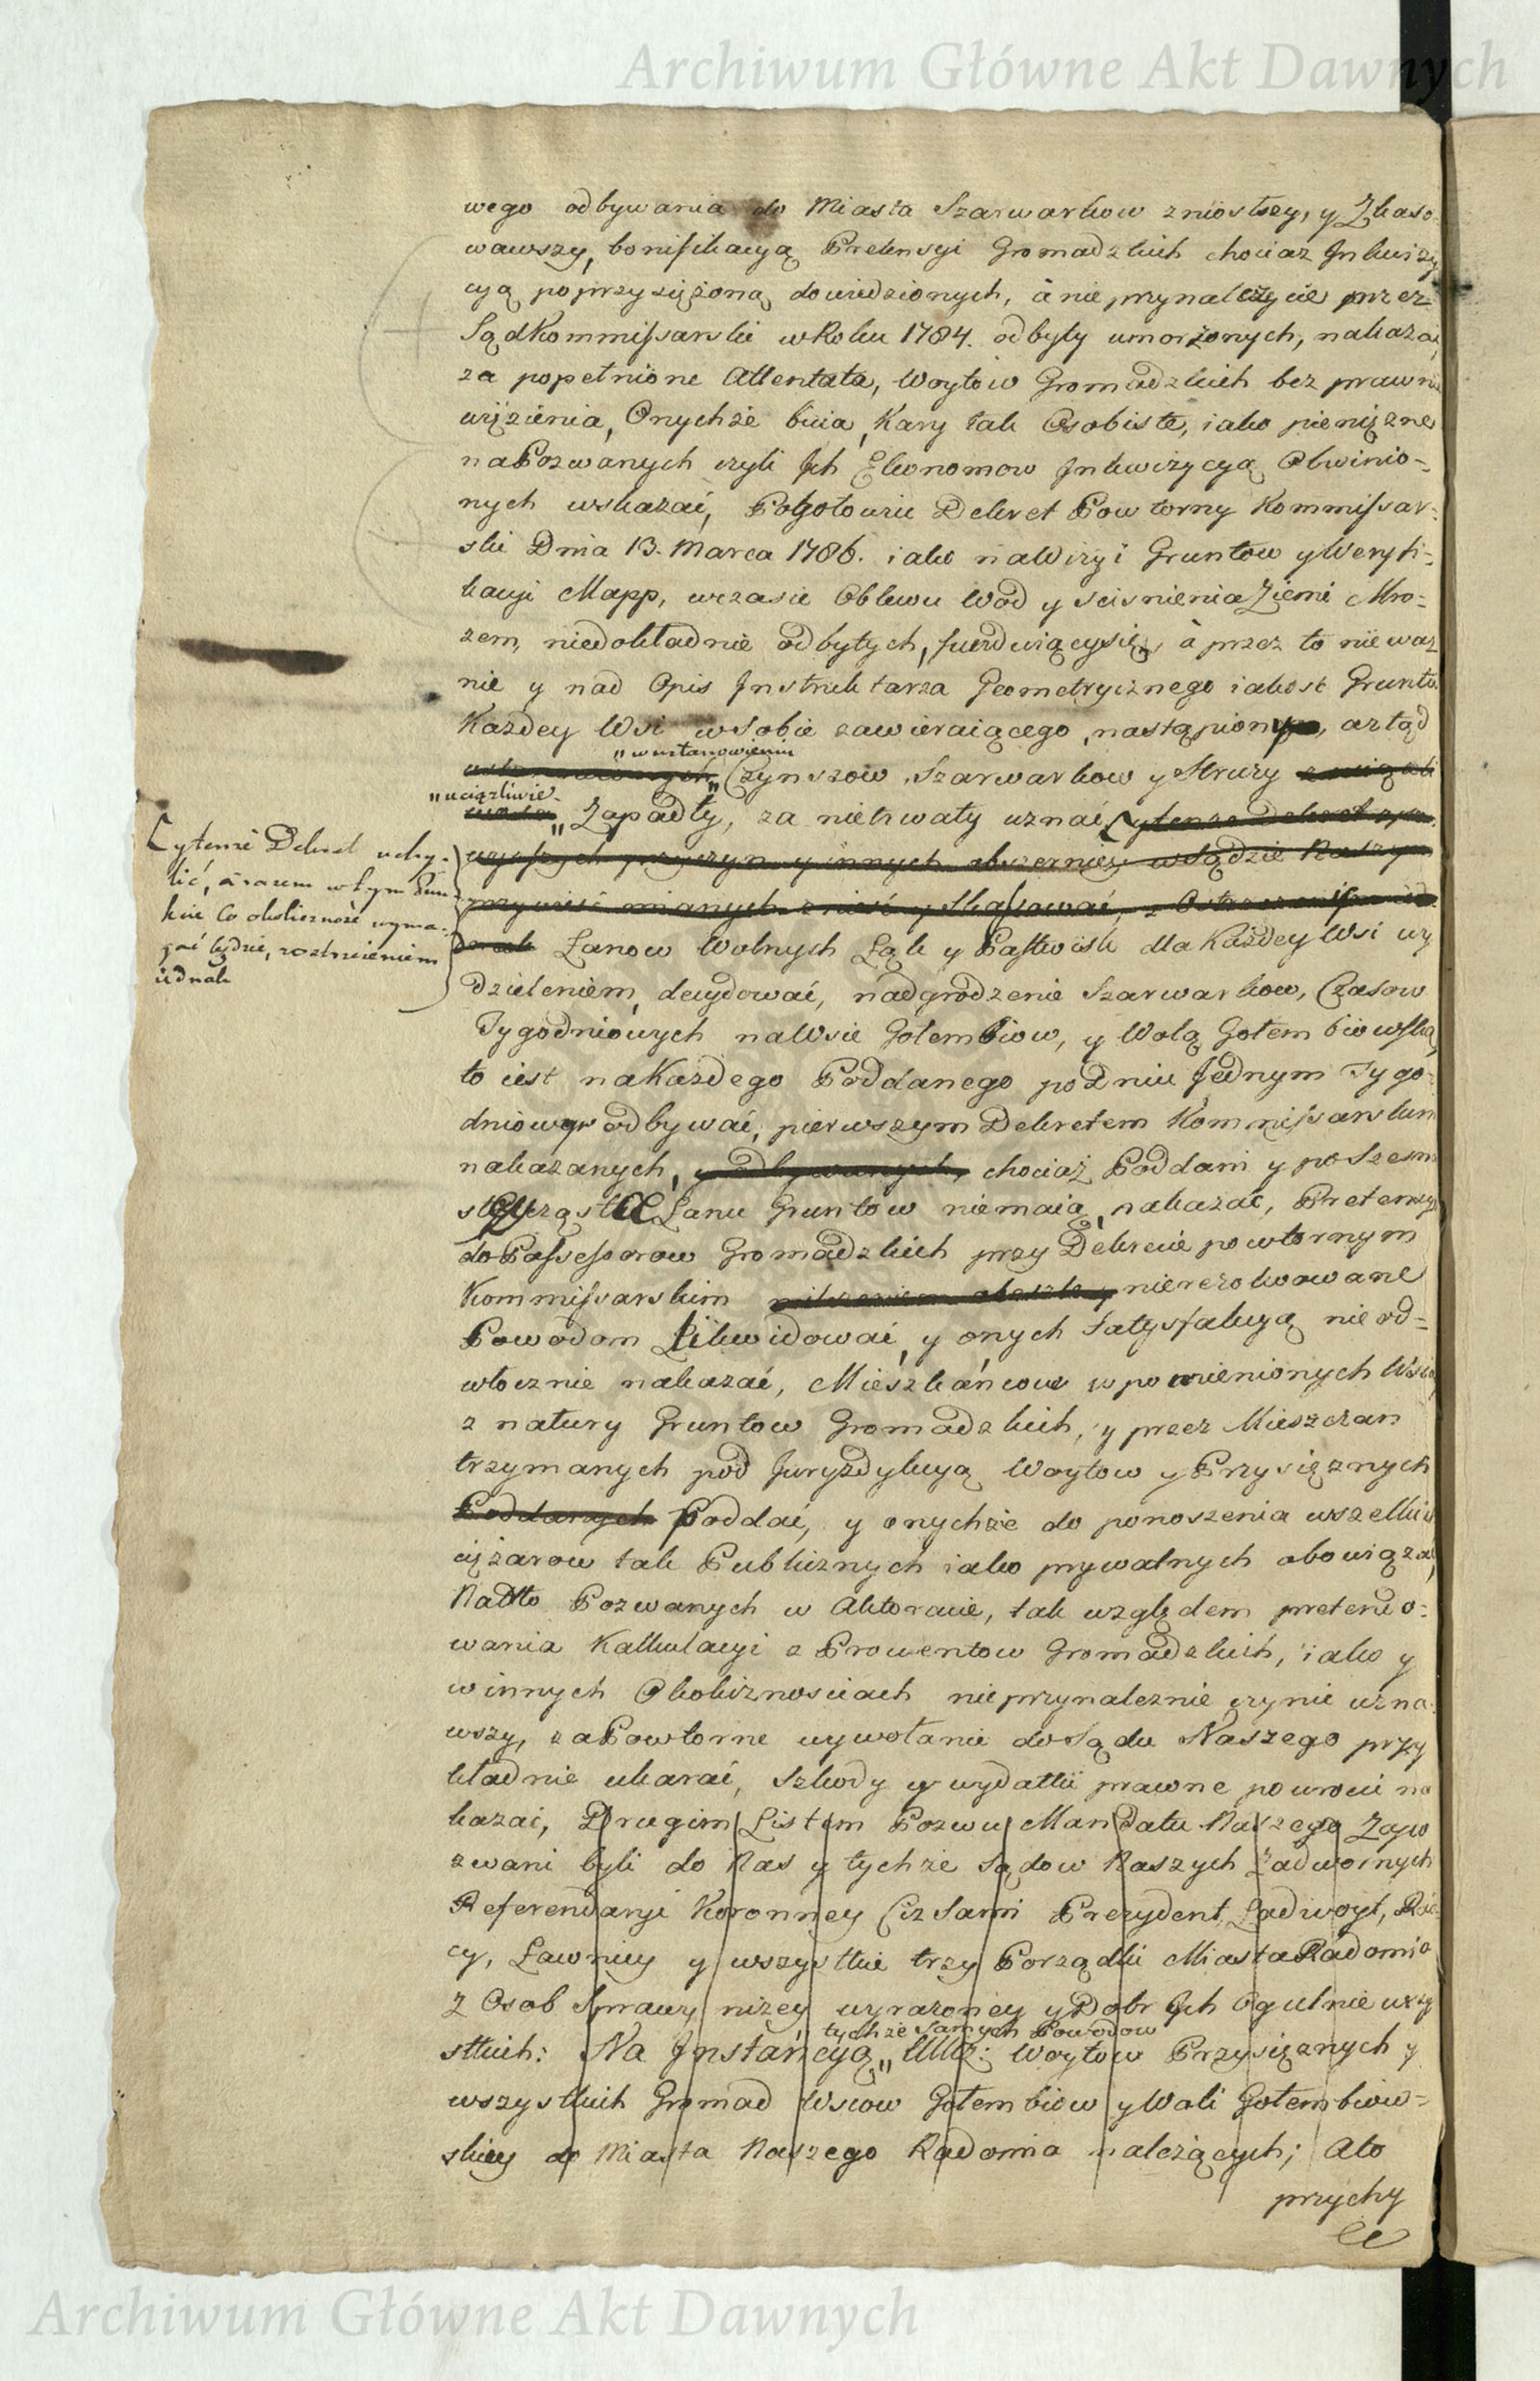 Archiwum Główne Akt Dawnych
wego odbywania do Miasta Szarwarkow zniosłszy, y Zkaso-
wawszy, bonifikacyą Pretensyi Gromadzkich chociaż Inkwizy
cyą poprzysiężoną dowiedzionych, à nie przynależycie przez
Sąd Kommissarski w Roku 1784. odbyty umorzonych, nakazać,
za popełnione Attentata, Woytow Gromadzkich bez prawne
więzienia, Onychże bicia, Kary tak Osobiste, iako pieniężne
na Pozwanych czyli Ich Ekonomow Inkwizycyą Obwinio-
nych wskazać, Pogotowiu Dekret Powtorny Kommissar-
ski Dnia 13. Marca 1786. iako na Wizyi Gruntow y Weryfi-
kacyi Mapp, w czasie Oblewu Wod y scisnienia Ziemi Mro-
zem, niedokładnie odbytych, fundwiącysię, à przez to nieważ
nie y nad Opis Instruktarza Geometrycznego iakość Gruntu
Każdey Wsi w Sobie zawieraiącego, nastąpiony, a ztąd
„w ustanowieniu
Czynszow, Szarwarkow y Struży
„uciążliwie
Zapadły, za nietrwały uznać, Cytenże Dekret z po-
wyższych przyczyn y innych obszerniey w Sądzie Naszym
przywieść mianych znieść y Skassować, z Ostrzeżeniem
Cytenże Dekret uchy-
lić, à razem w tym Pun-
kcie co okoliczność wyma-
gać będzie, rostrzenieniem
iednak
Łanow Wolnych Łąk y Pastwisk dla Każdey Wsi wy
dzieleniem, decydować, nadgrodzenie Szarwarkow, Czasow
Tygodniowych na Wsie Gołembiow, y Wolą Gołembiowską,
to iest na Każdego Poddanego po Dniu Jednym Tygo-
dniowo odbywać, pierwszym Dekretem Kommissarskim
nakazanych, y odbywanych, chociaż Poddani y po Szesna
stey cząstce Łanu Gruntow niemaią, nakazać, Pretensye
do Possessorow Gromadzkich przy Dekrecie powtornym
Kommissarskim nierezolwowane
Powodom Likwidować, y onych Satysfakcyą nieod-
włocznie nakazać, Mieszkańcow w pomienionych Wsiach
z natury Gruntow Gromadzkich, y przez Mieszczan
trzymanych pod Juryzdykcyą Woytow y Przysiężnych
Poddanych Poddać, y onychże do ponoszenia wszelkich
ciężarow tak Publicznych iako prywatnych obowiązać,
Nadto Pozwanych w Aktoracie, tak względem pretendo-
wania Kalkulacyi z Prowentow Gromadzkich, iako y
w innych Okolicznosciach nieprzynależnie czynie uzna-
wszy, za Powtorne wywołanie do Sądu Naszego przy
kładnie ukarać, Szkody y wydatki prawne powrocić na
kazać, Drugim Listem Pozwu Mandatu Naszego Zapo
zwani byli do Nas y tychże Sądow Naszych Zadwornych
Referendaryi Koronney Ciż Sami Prezydent Ladwoyt, Ray-
cy, Ławnicy y wszystkie trzy Porządki Miasta Radomia
z Osob Sprawy niżey wyrażoney y Dobr Ich Ogulnie wszy
tychże Samych Powodow
stkich: Na Instańcyą „ UUcz: Woytow Przysiężnych y
wszystkich Gromad Wsiow Gołembiow y Woli Gołembiow-
skiey do Miasta Naszego Radomia należących; Ato
przychy
Archiwum Główne Akt Dawnych